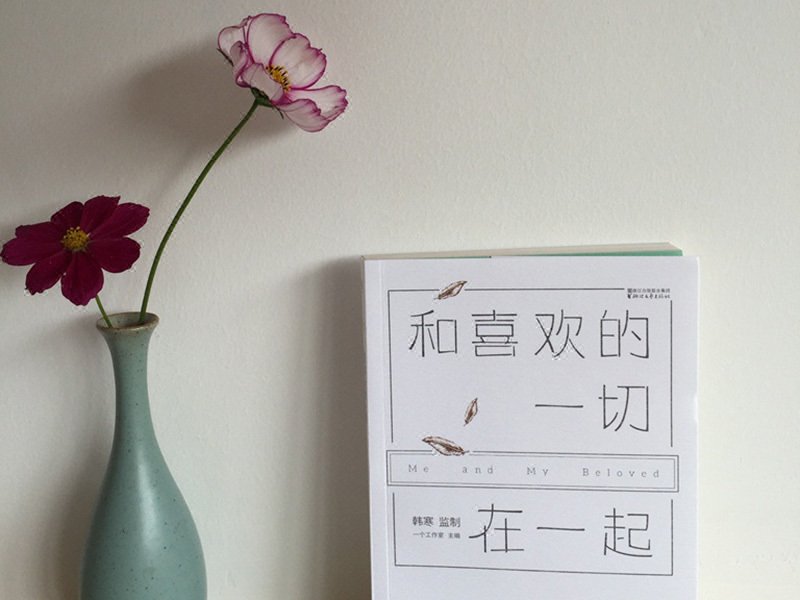 浙江出版联合集团
浙江文艺出版社
和喜欢的
一切
Me and My Beloved
韩寒 监制
一个工作室 主编
在一起